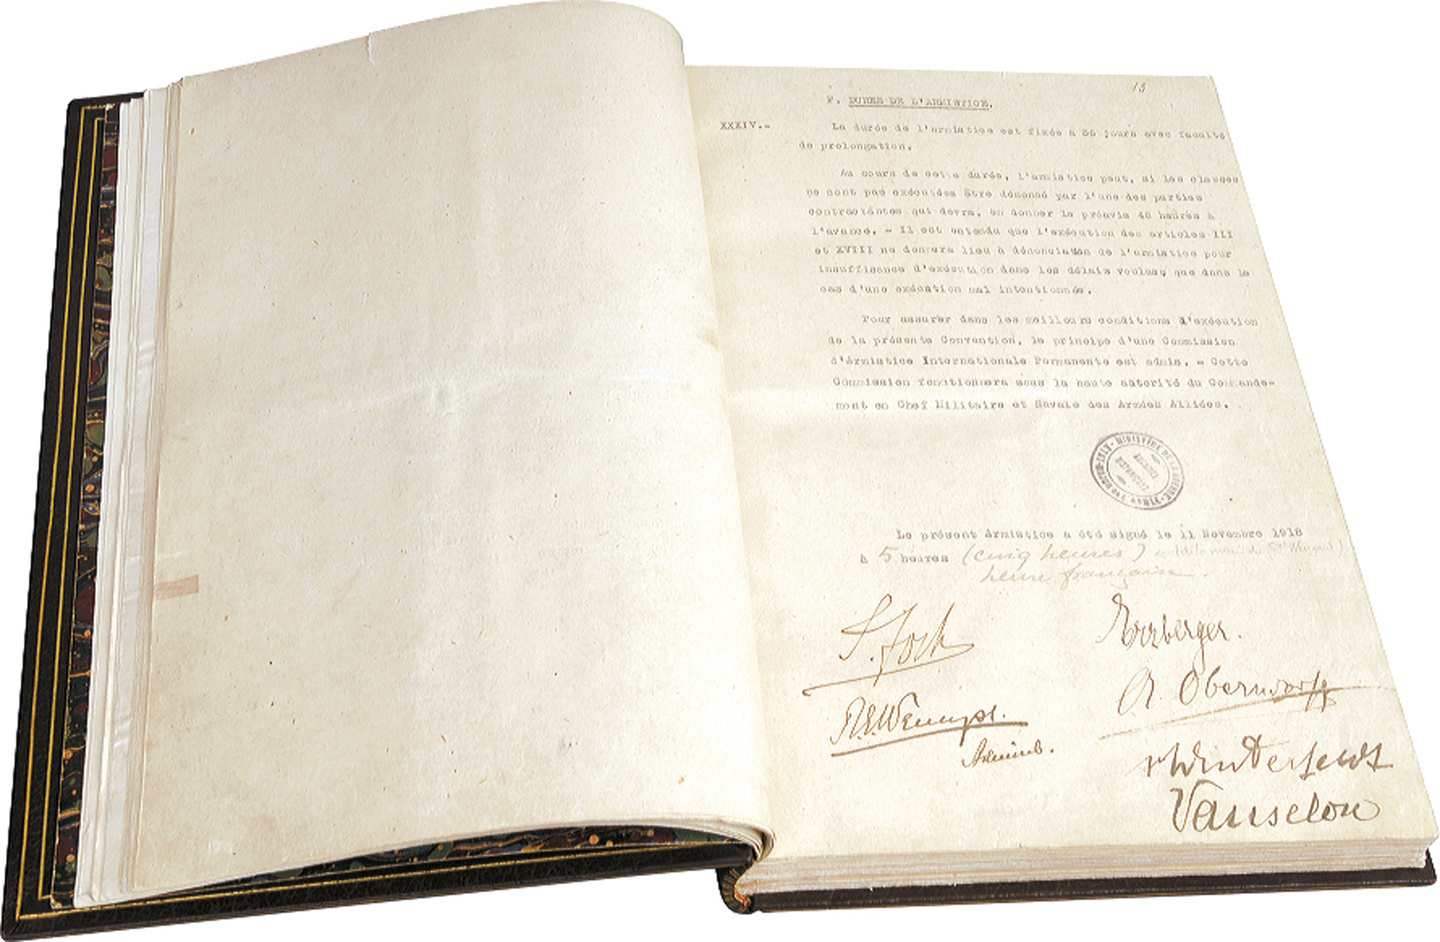 13
F. DUREE DE L'ARMISTICE.
XXXIV.- La durée de l'armistice est fixée à 36 jours avec faculté
de prolongation.
Au cours de cette durée, l'armistice peut, si les clauses
ne sont pas exécutées être dénoncé par l'une des parties
contractantes qui devra, en donner le préavis 48 heures à
l'avance. - Il est entendu que l'exécution des articles III
et XVIII ne donnera lieu à dénonciation de l'armistice pour
insuffisance d'exécution dans les délais voulus, que dans le
cas d'une exécution mal intentionnée.
Pour assurer dans les meilleurs conditions l'exécution
de la présente Convention, le principe d'une Commission
d'Armistice Internationale Permanente est admis. - Cette
Commission fonctionnera sous la haute autorité du Commande-
ment en Chef Militaire et Navale des Armées Alliées.
MINISTÈRE DE LA GUERRE
Le présent Armistice a été signé le 11 Novembre 1918
à 5 heures (cinq heures)
heure française.
F. Foch
Erzberger.
R.E. Wemyss.
A. Oberndorff
Admiral.
v Winterfeldt
Vanselow